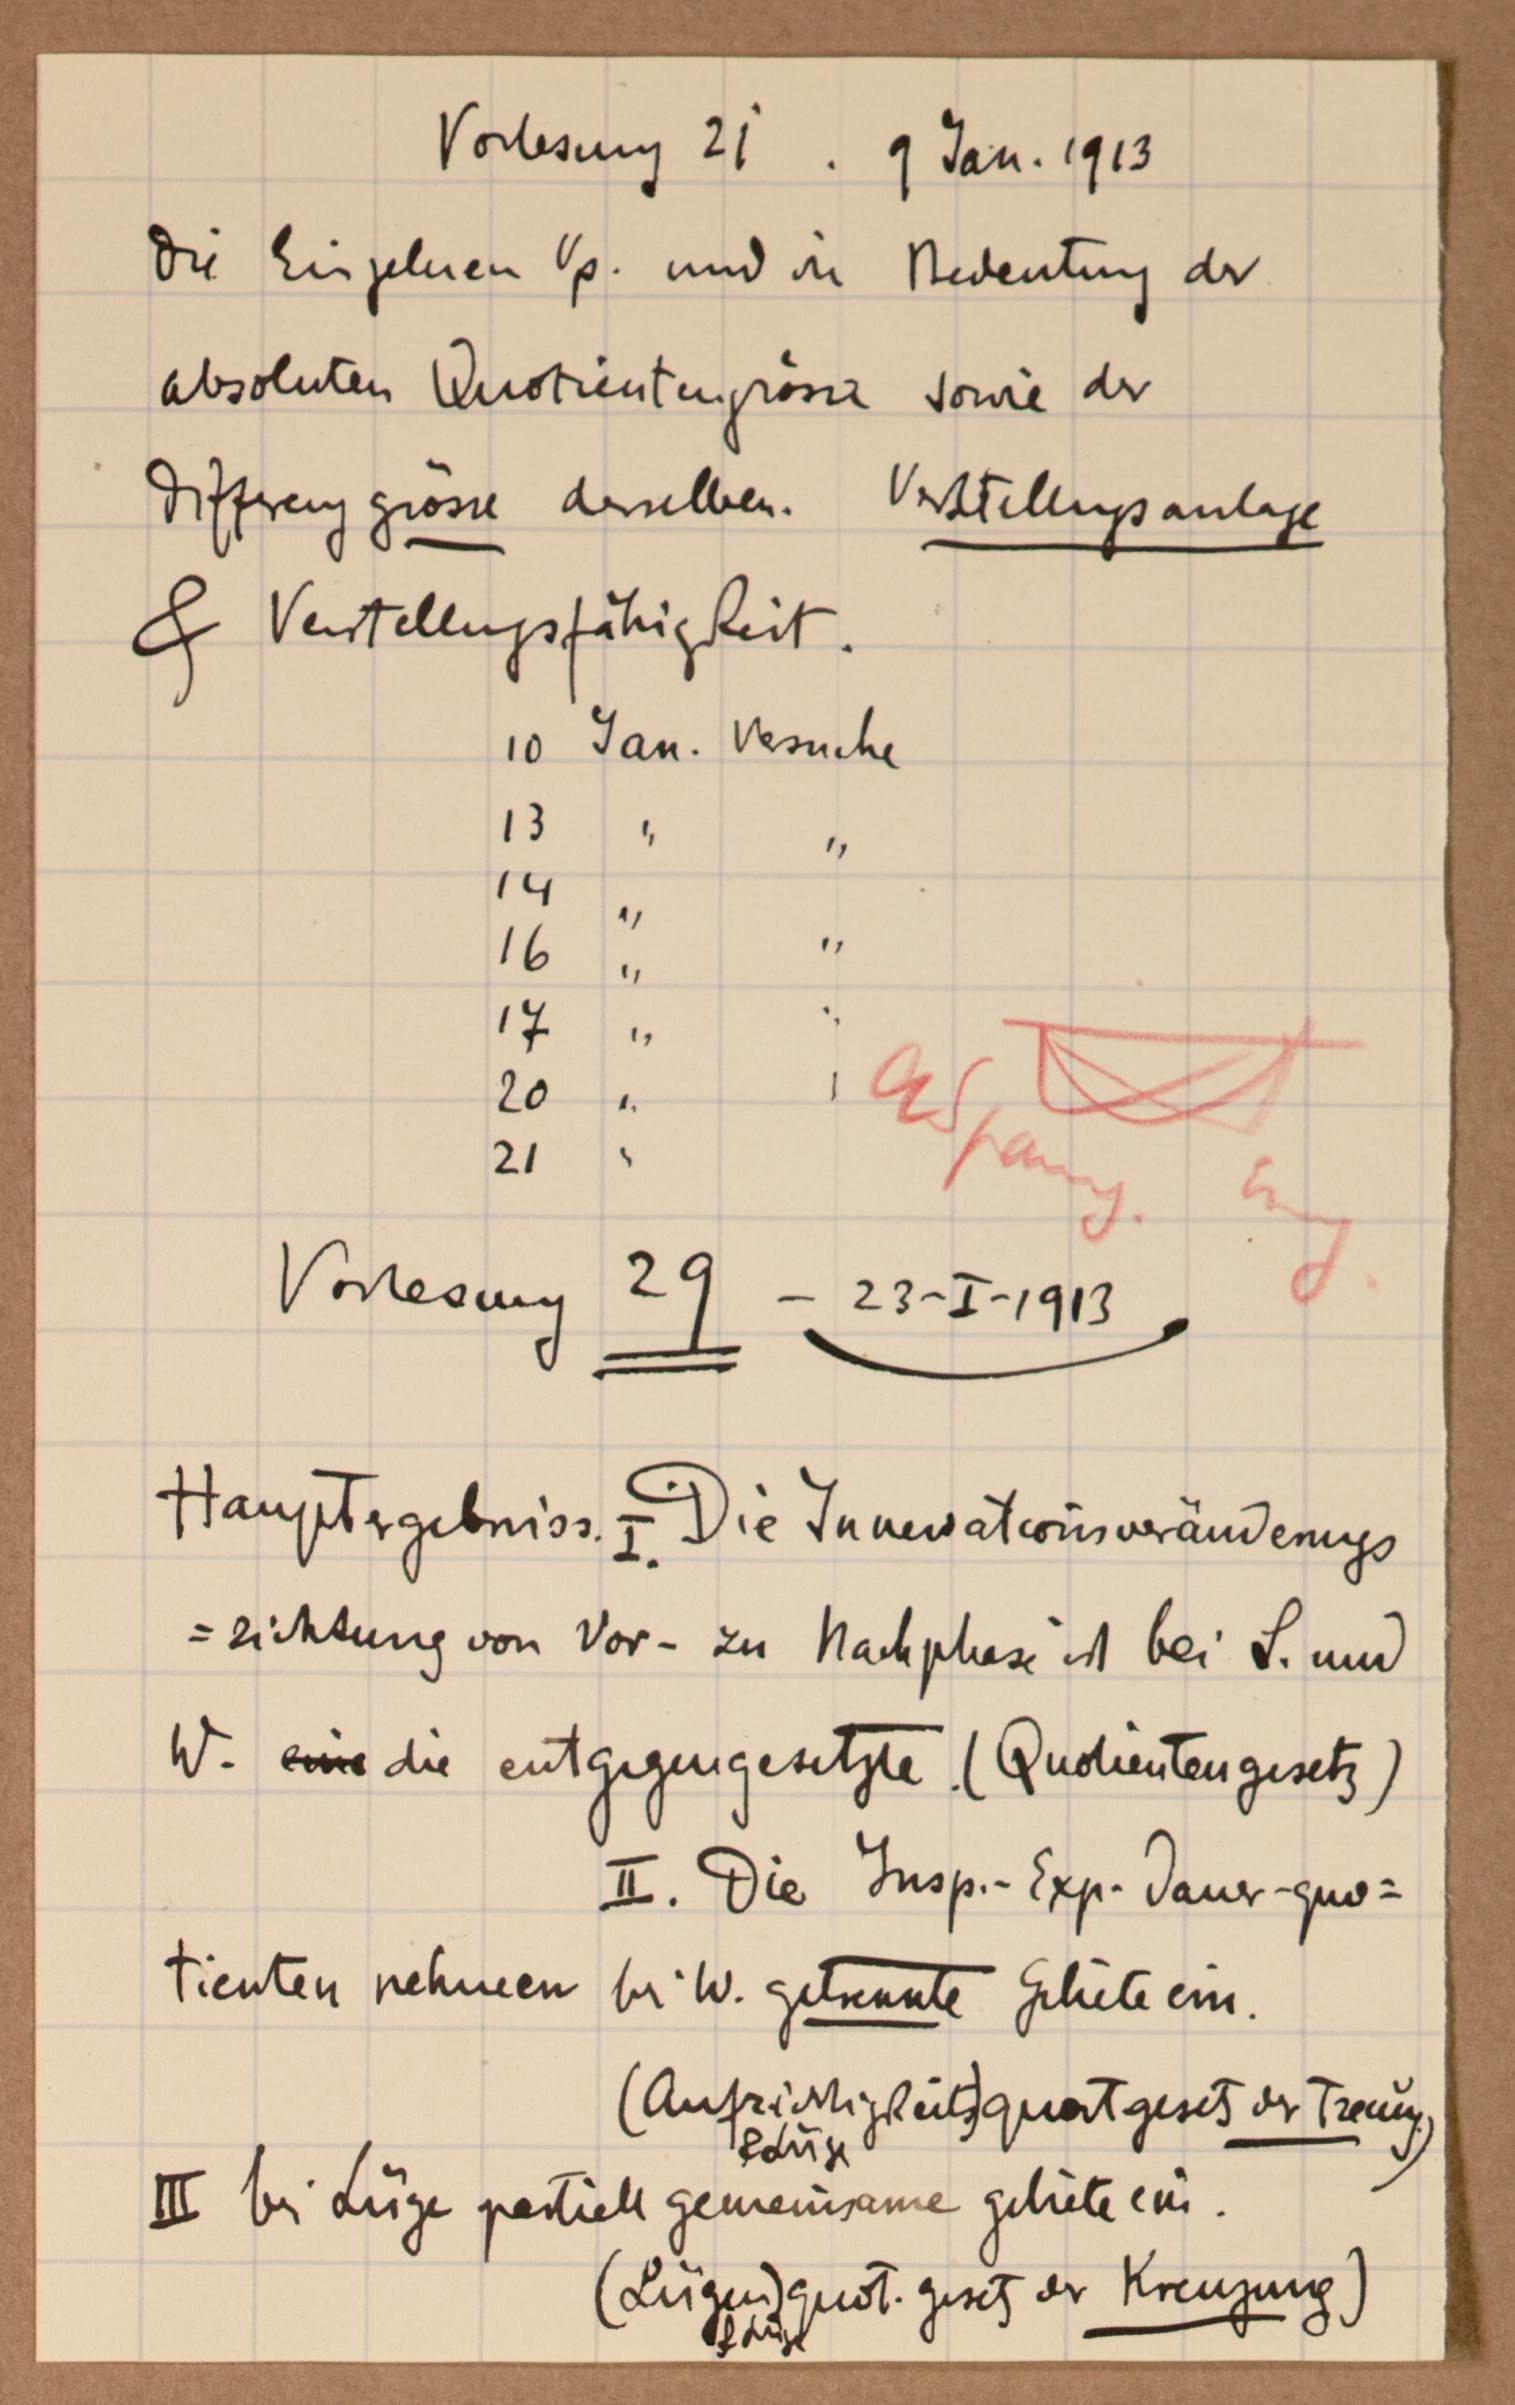 Vorlesung 21 . 9 Jan. 1913
Die Einzelnen Vp. und die Bedeutung der
absoluten Quotientengrösse sowie der
Differenzgrösse derselben. Verstellungsanlage
& Verstellungsfähigkeit.
10 Jan. Versuche
13 " "
14 "
16 " "
17 " "
20 " "
21 "
Vorlesung 29 - 23-I-1913
Hauptergebniss. I. Die Innervationsveränderungs
=richtung von Vor- zu Nachphase ist bei L. und
W. eine die entgegengesetzte. (Quotientengesetz)
II. Die Insp.- Exp- Dauer-quo=
tienten nehmen bei W. getrennte Gebiete ein.
(Aufrichtigkeits)quotgesetz der Trennung)
III bei Lüge partiell gemeinsame gebiete ein.
(Lügen)quot. gesetz der Kreuzung)